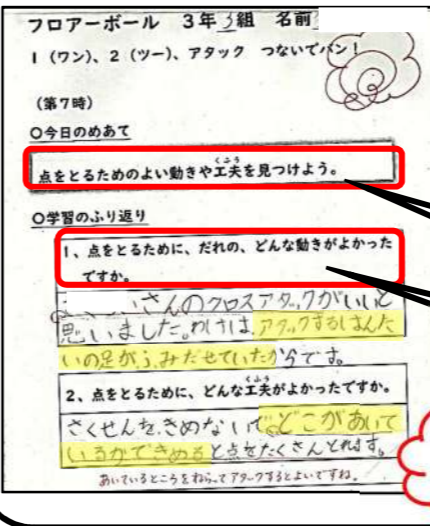 フロアーボール 3年3組 名前
1(ワン)、2(ツー)、アタック つないでパン!
(第7時)
○今日のめあて
点をとるためのよい動きや工夫を見つけよう。
くふう
○学習のふり返り
1、点をとるために、だれの、どんな動きがよかった
ですか。
さんのクロスアタックがいいと
思いました。わけは、アタックするはんた
いの足がふみだせていたからです。
2、点をとるために、どんな工夫がよかったですか。
くふう
さくせんをきめないで。どこがあいて
いるかできめると点をたくさんとれます。
あいているところをねらってアタックするとよいですね。